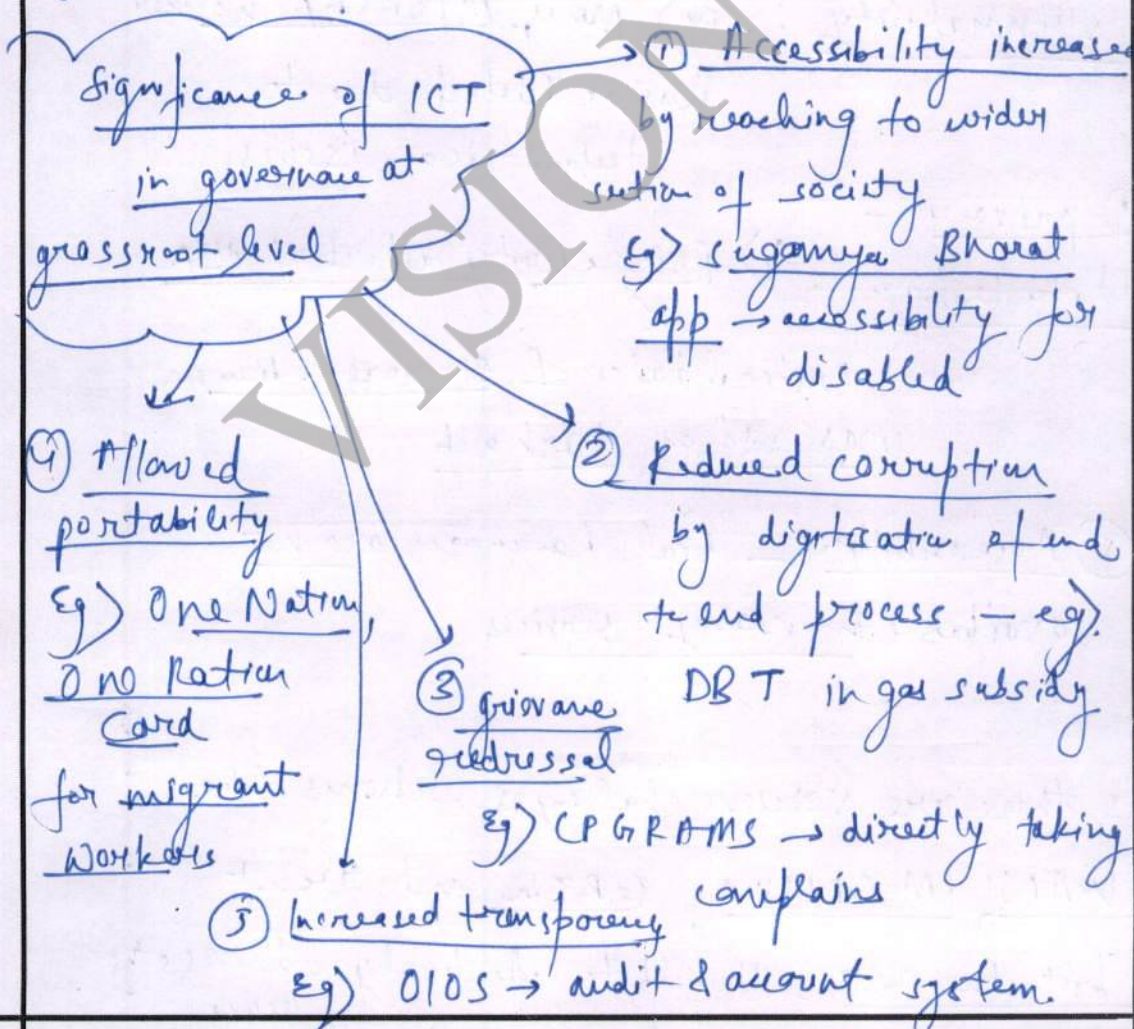 Significance of ICT
in governance at
grassroot level
① Accessibility increased
by reaching to wider
section of society
Eg) Sugamya Bharat
app → accessibility for
disabled
② Reduced corruption
by digitisation of end
to end process – eg).
DBT in gas subsidy
③ grievance
redressal
Eg) CPGRAMS → directly taking
complains
④ Allowed
portability
Eg) One Nation,
One Ration
Card
for migrant
workers
⑤ Increased transparency
Eg) OIOS → audit & account system.
VISION